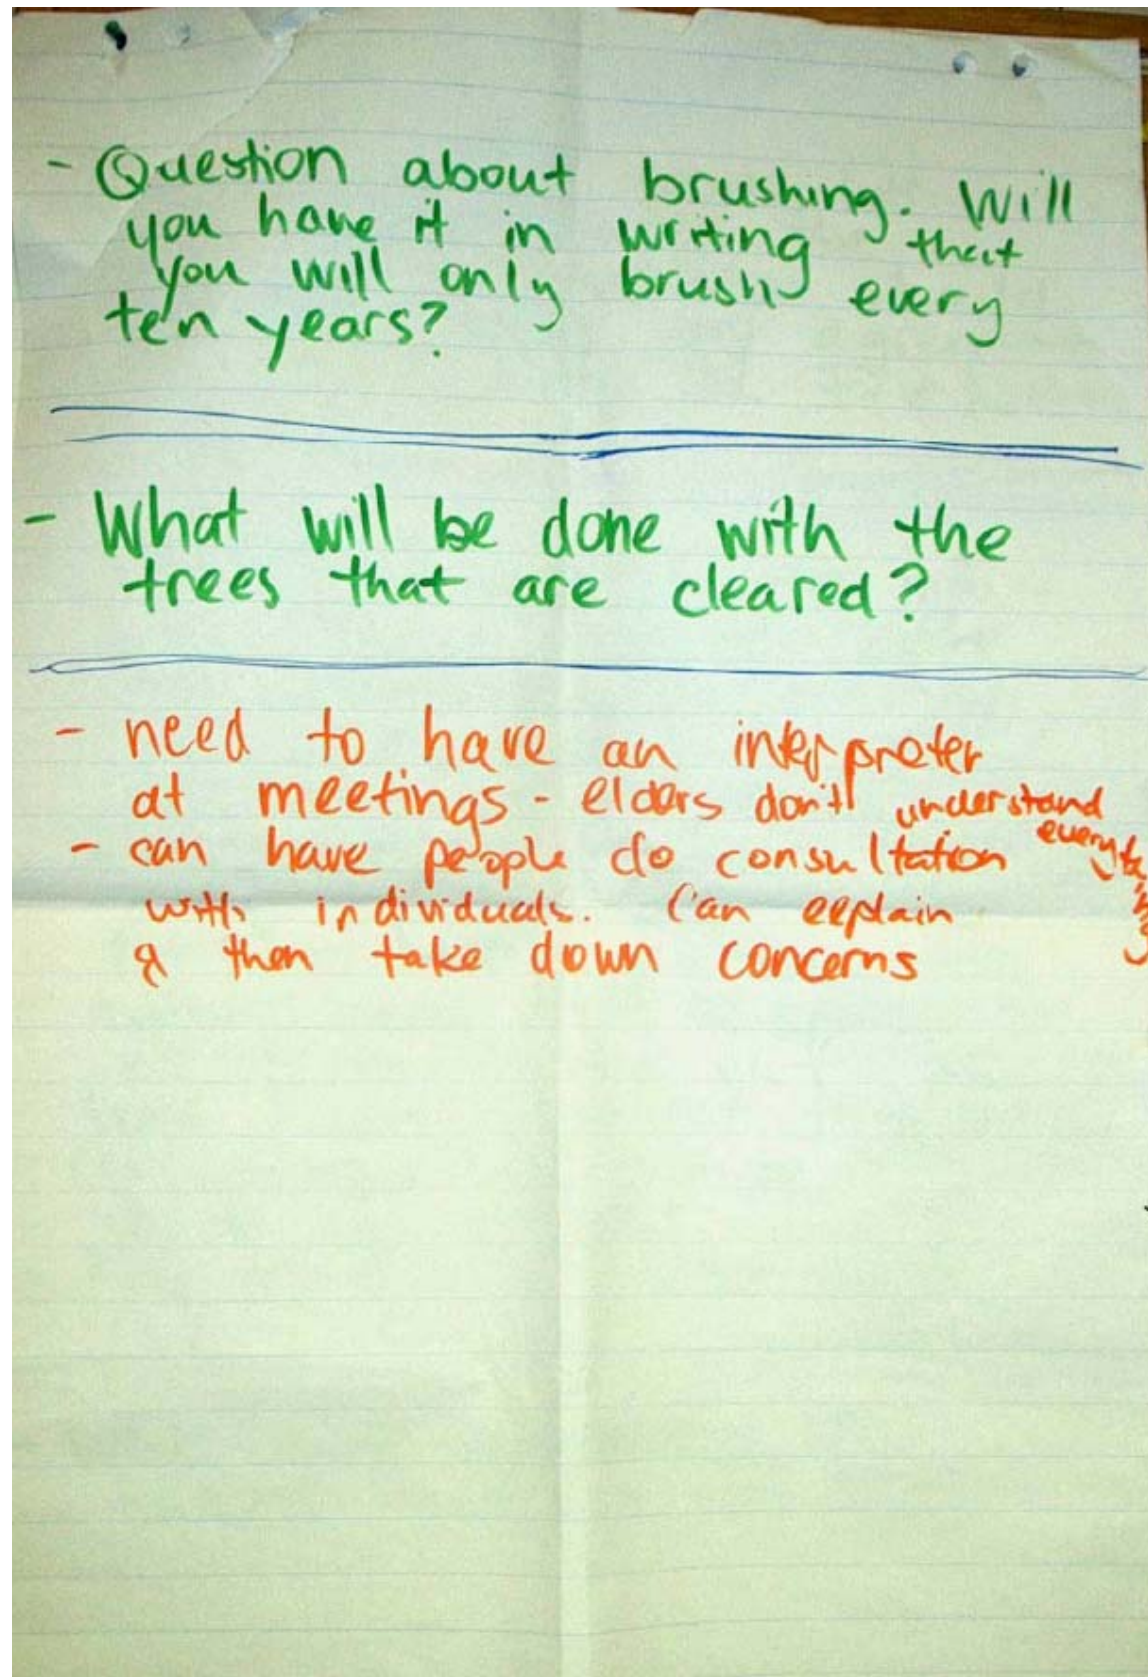 - Question about brushing. Will
you have it in writing that
you will only brush every
ten years?
- What will be done with the
trees that are cleared?
- need to have an interpreter
at meetings - elders don't understand everything
- can have people do consultation
with individuals. Can explain
& then take down concerns